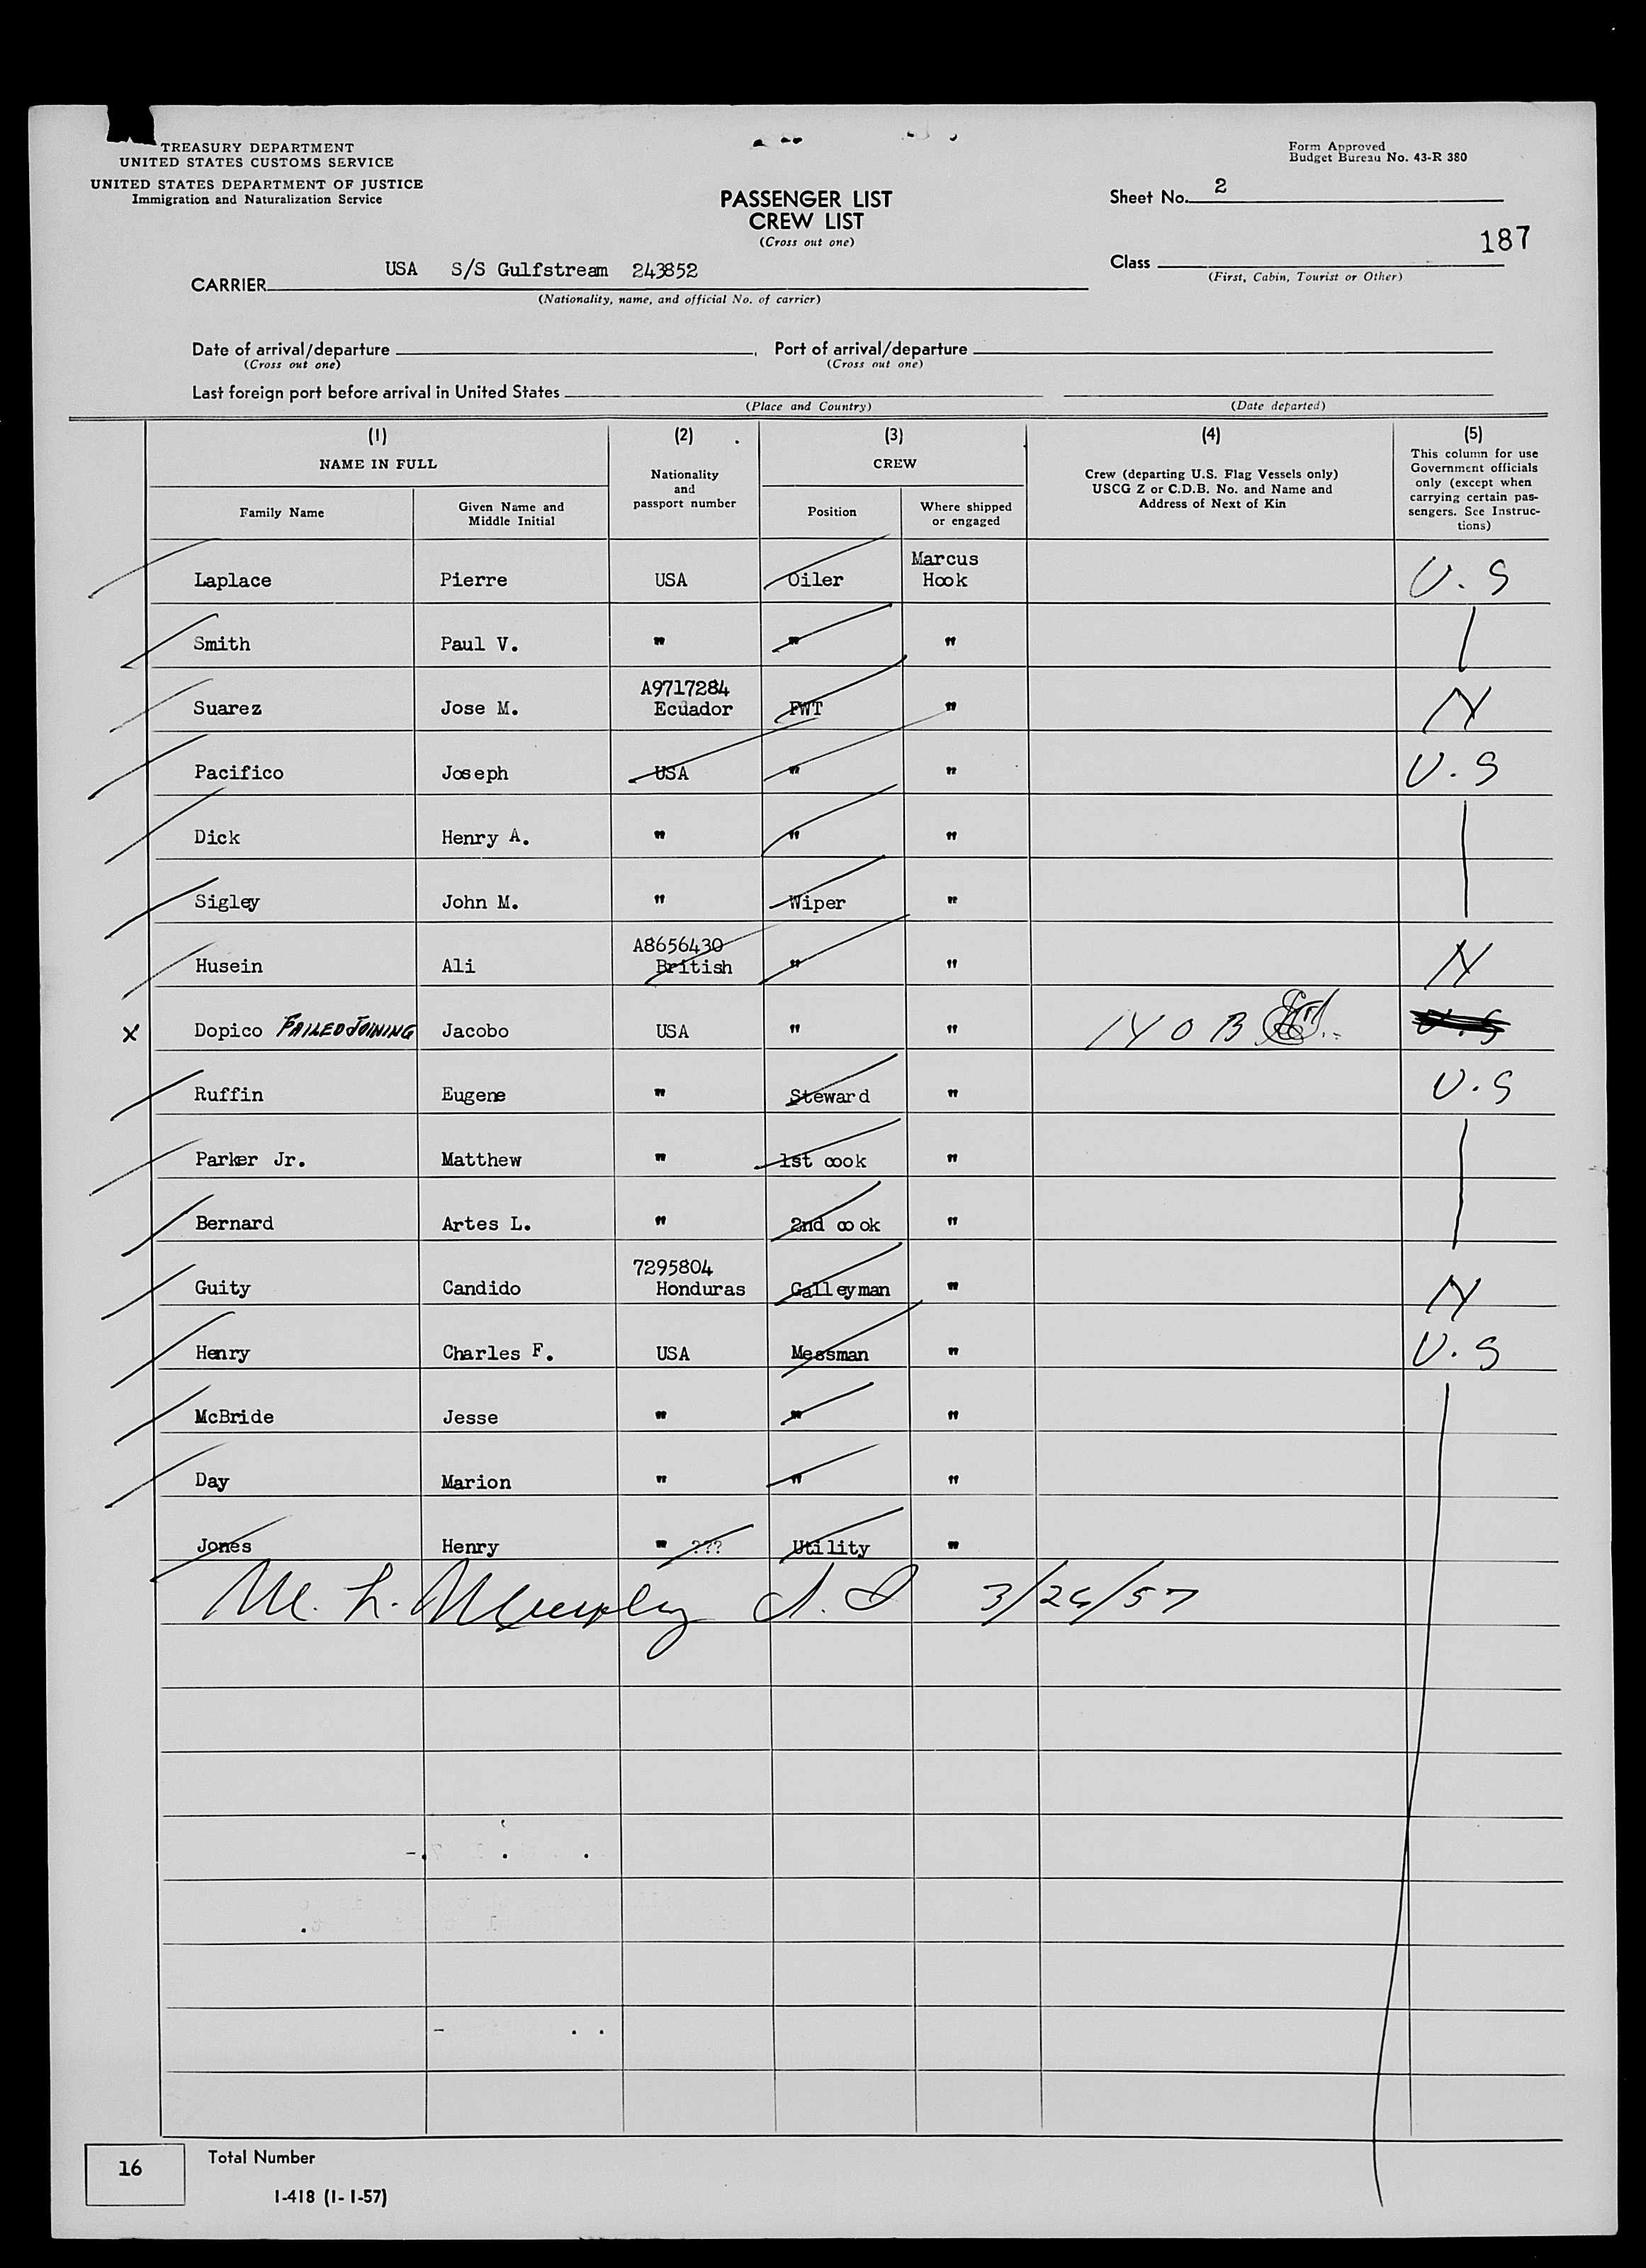 TREASURY DEPARTMENT
UNITED STATES CUSTOMS SERVICE
UNITED STATES DEPARTMENT OF JUSTICE
Immigration and Naturalization Service
Form Approved
Budget Bureau No. 43-R 380
PASSENGER LIST
CREW LIST
(Cross out one)
Sheet No. 2
187
Class
(First, Cabin, Tourist or Other)
CARRIER USA S/S Gulfstream 243852
(Nationality, name, and official No. of carrier)
Date of arrival/departure , Port of arrival/departure
(Cross out one) (Cross out one)
Last foreign port before arrival in United States
(Place and Country) (Date departed)
(1) (2) (3) (4) (5)
NAME IN FULL
Family Name
Given Name and
Middle Initial
Nationality
and
passport number
CREW
Position
Where shipped
or engaged
Crew (departing U.S. Flag Vessels only)
USCG Z or C.D.B. No. and Name and
Address of Next of Kin
This column for use
Government officials
only (except when
carrying certain pas-
sengers. See Instruc-
tions)
Marcus
Laplace Pierre USA Oiler Hook U.S
Smith Paul V. " " "
A9717284
Suarez Jose M. Ecuador FWT " N
Pacifico Joseph USA " " U.S
Dick Henry A. " " "
Sigley John M. " Wiper "
A8656430
Husein Ali British " " N
X Dopico FAILED JOINING Jacobo USA " " N O B U.S
Ruffin Eugene " Steward " U.S
Parker Jr. Matthew " 1st cook "
Bernard Artes L. " 2nd co ok "
7295804
Guity Candido Honduras Galleyman " N
Henry Charles F. USA Messman " U.S
McBride Jesse " " "
Day Marion " " "
Jones Henry " ??? Utility "
M. L. Murphy 3/26/57
16 Total Number
I-418 (1-1-57)